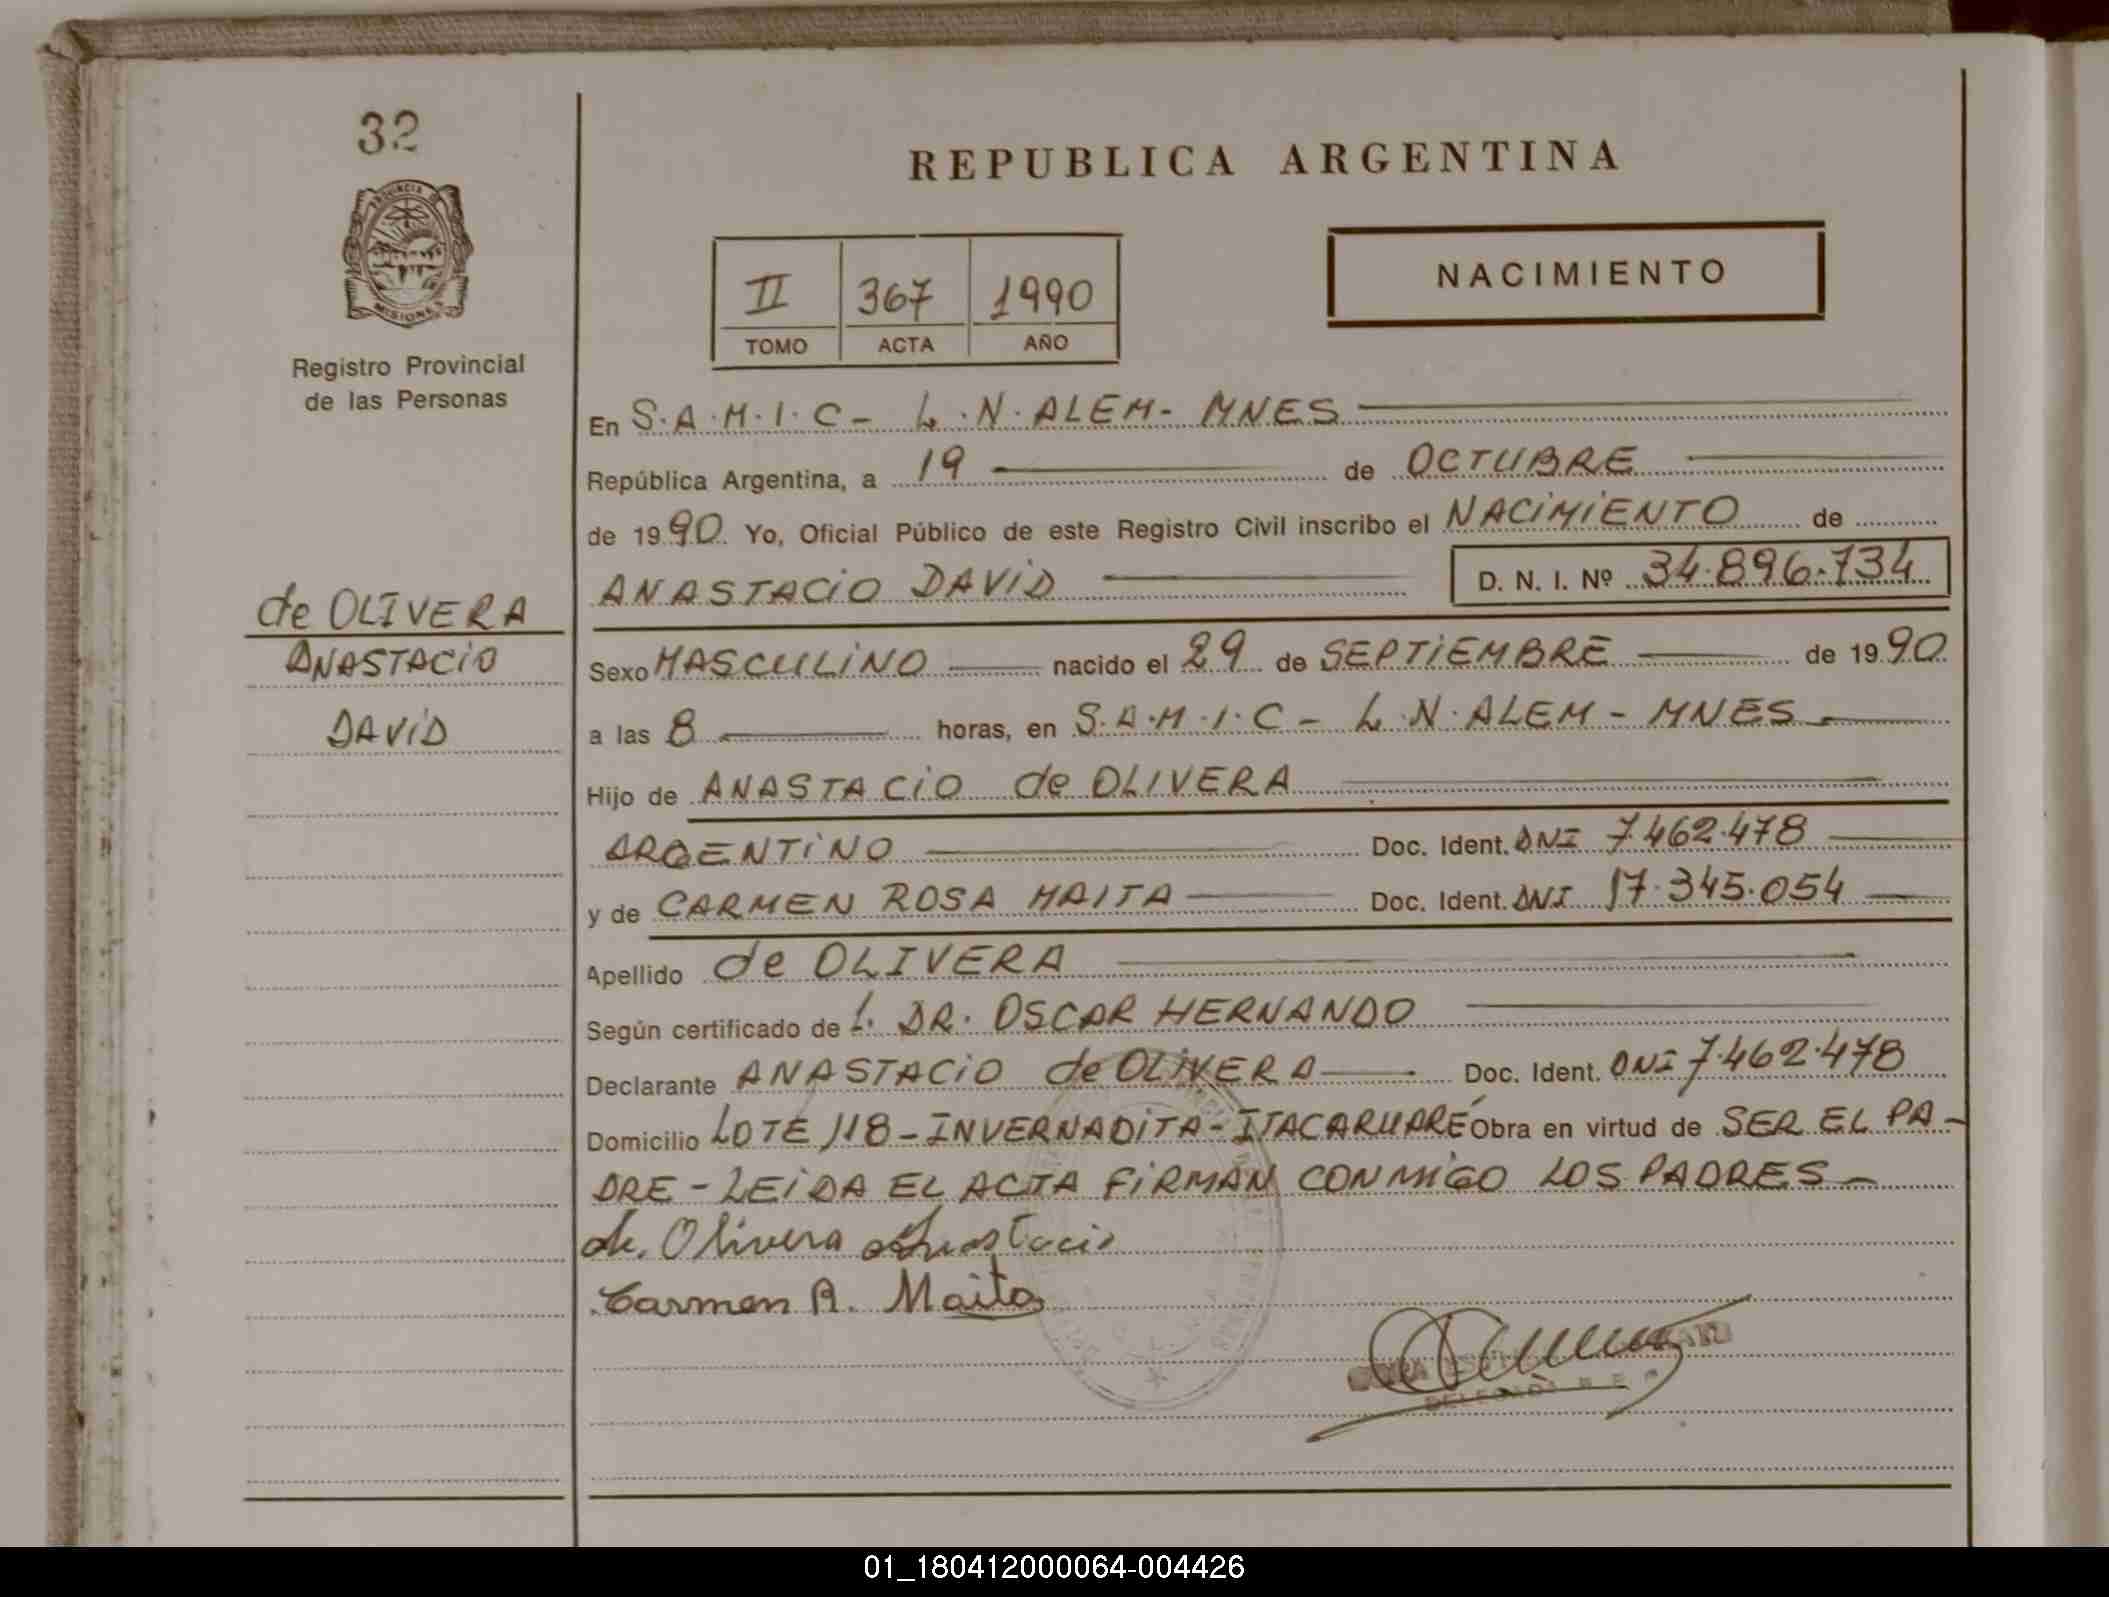 32
PROVINCIA
MISIONES
Registro Provincial
de las Personas
de OLIVERA
ANASTACIO
DAVID
REPUBLICA ARGENTINA
II 367 1990
TOMO ACTA AÑO
NACIMIENTO
En S.A.M.I.C - L.N. ALEM - MNES
República Argentina, a 19 de OCTUBRE
de 1990. Yo, Oficial Público de este Registro Civil inscribo el NACIMIENTO de
ANASTACIO DAVID D. N. I. Nº 34.896.734
Sexo MASCULINO nacido el 29 de SEPTIEMBRE de 1990
a las 8 horas, en S.A.M.I.C - L.N. ALEM - MNES
Hijo de ANASTACIO de OLIVERA
ARGENTINO Doc. Ident. DNI 7.462.478
y de CARMEN ROSA MAITA Doc. Ident. DNI 17.345.054
Apellido de OLIVERA
Según certificado de L. DR. OSCAR HERNANDO
Declarante ANASTACIO de OLIVERA Doc. Ident. DNI 7.462.478
Domicilio LOTE 118 - INVERNADITA - ITACARUARÉ Obra en virtud de SER EL PA-
DRE - LEIDA EL ACTA FIRMAN CONMIGO LOS PADRES -
de Olivera Anastacio
Carmen R. Maita
01_180412000064-004426